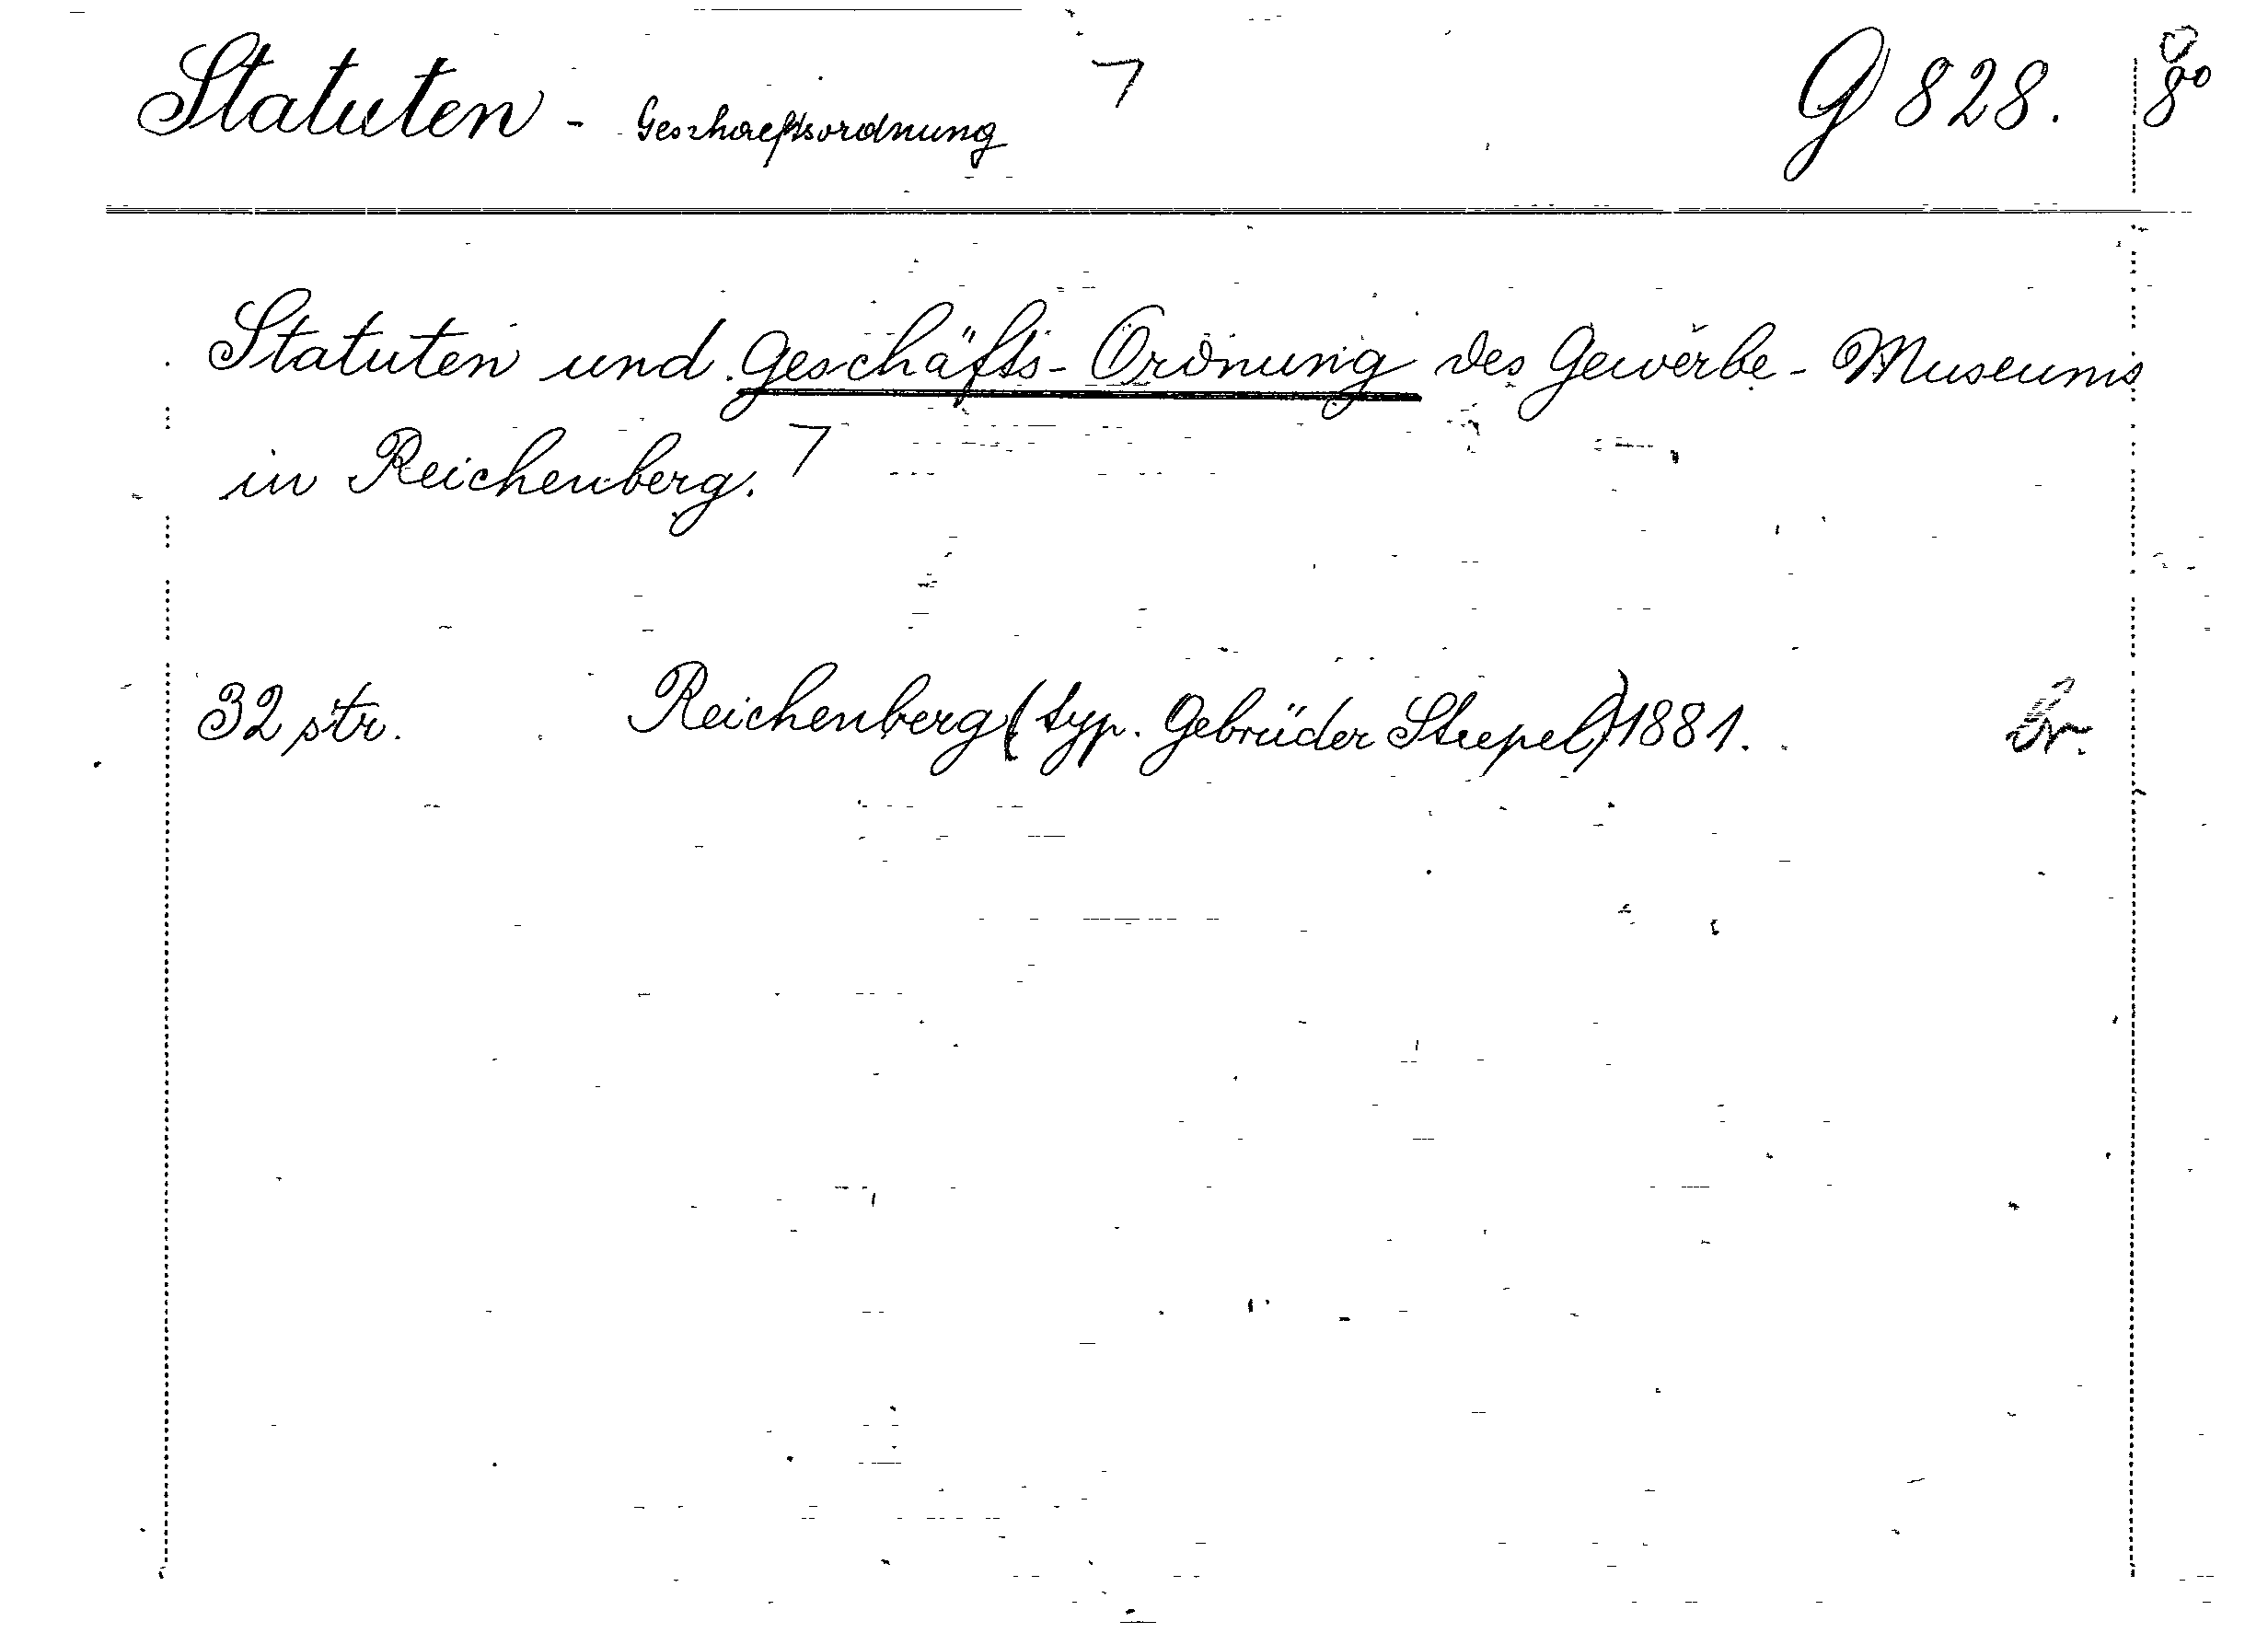 Statuten - Geschaeftsordnung G 828. 8°
Statuten und Geschäfts-Ordnung des Gewerbe-Museums
in Reichenberg.
32 str. Reichenberg (typ. Gebrüder Stiepel) 1881. Br.